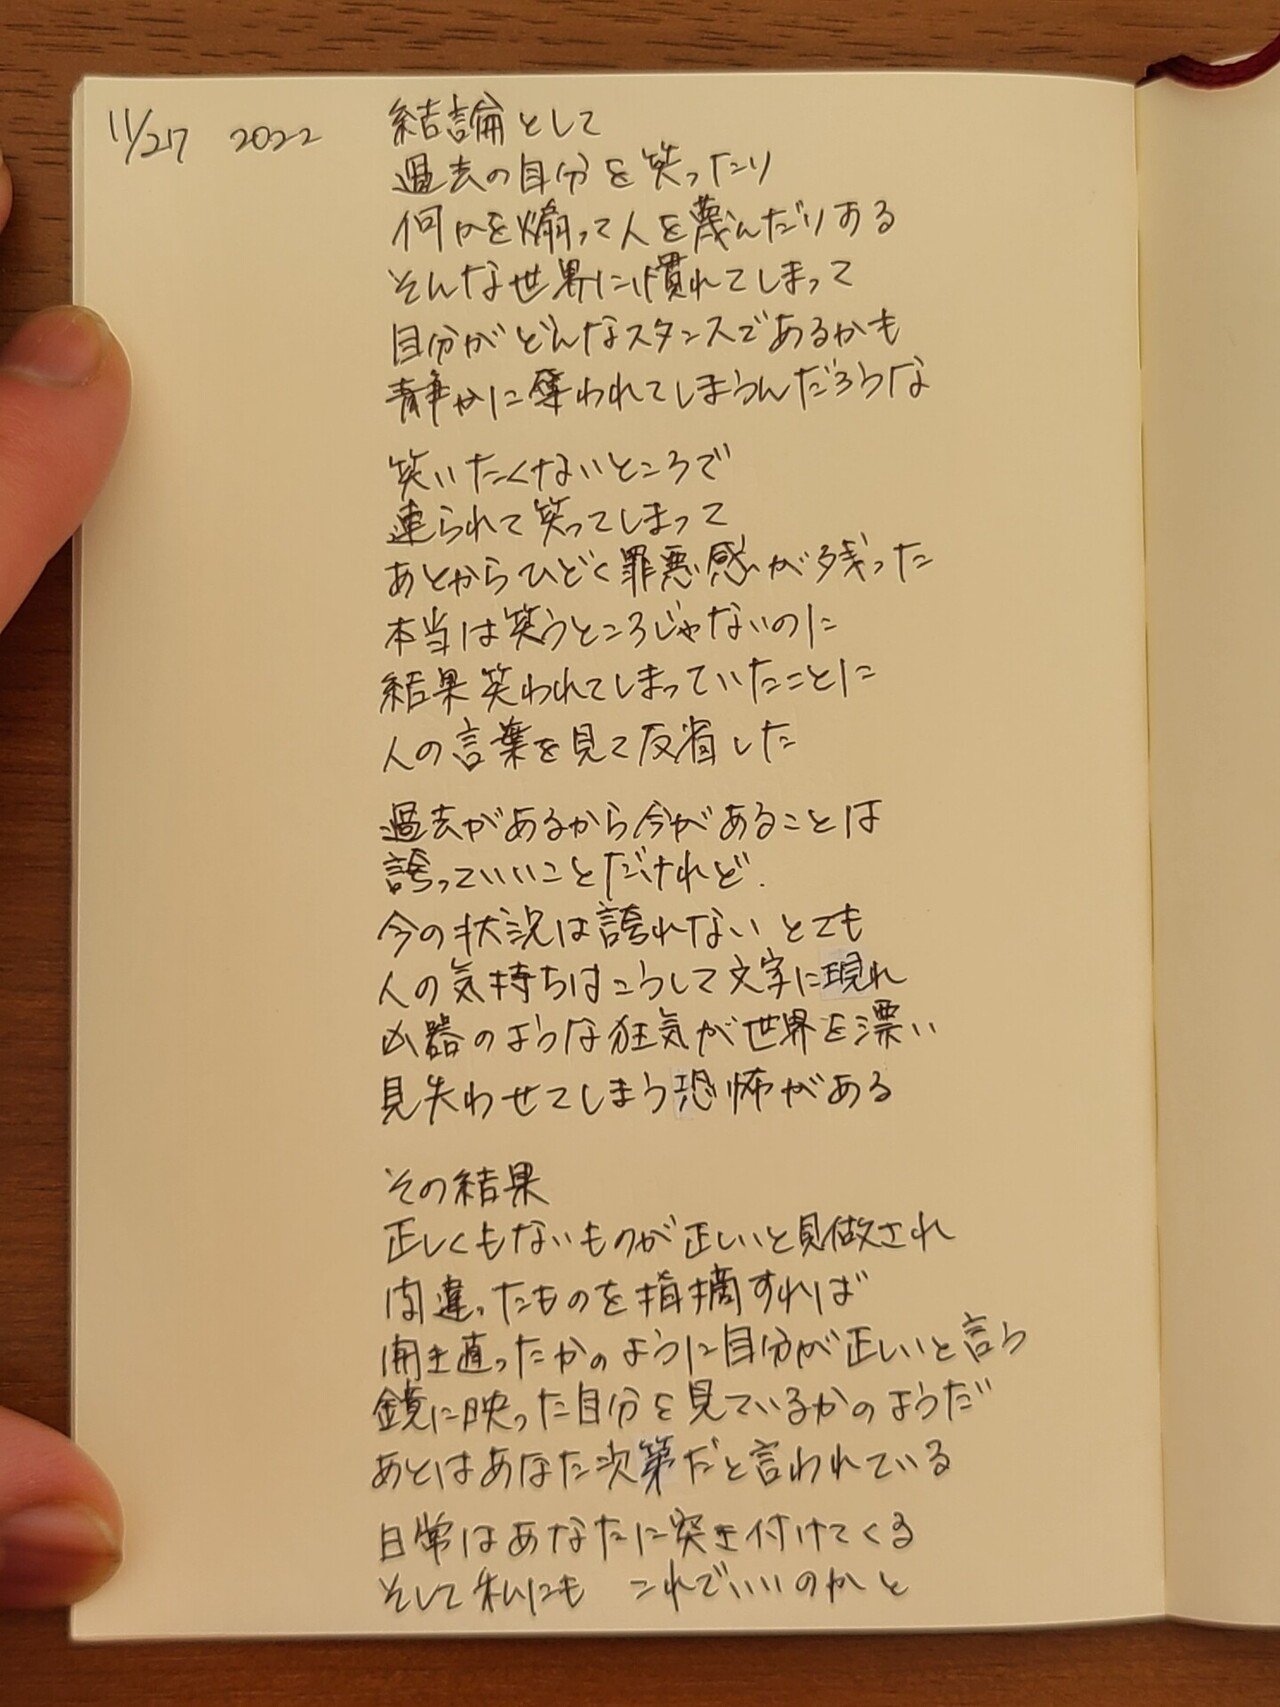 11/27 2022
結論として
過去の自分を笑ったり
何かを煽って人を蔑んだりある
そんな世界に慣れてしまって
自分がどんなスタンスであるかも
静かに奪われてしまうんだろうな
笑いたくないところで
連られて笑ってしまって
あとからひどく罪悪感が残った
本当は笑うところじゃないのに
結果笑われてしまっていたことに
人の言葉を見て反省した
過去があるから今があることは
誇っていいことだけれど.
今の状況は誇れない とても
人の気持ちはこうして文字に現れ
凶器のような狂気が世界を漂い
見失わせてしまう恐怖がある
その結果
正しくもないものが正しいと見做され
間違ったものを指摘すれば
開き直ったかのように自分が正しいと言う
鏡に映った自分を見ているかのようだ
あとはあなた次第だと言われている
日常はあなたに突き付けてくる
そして私にも これでいいのかと